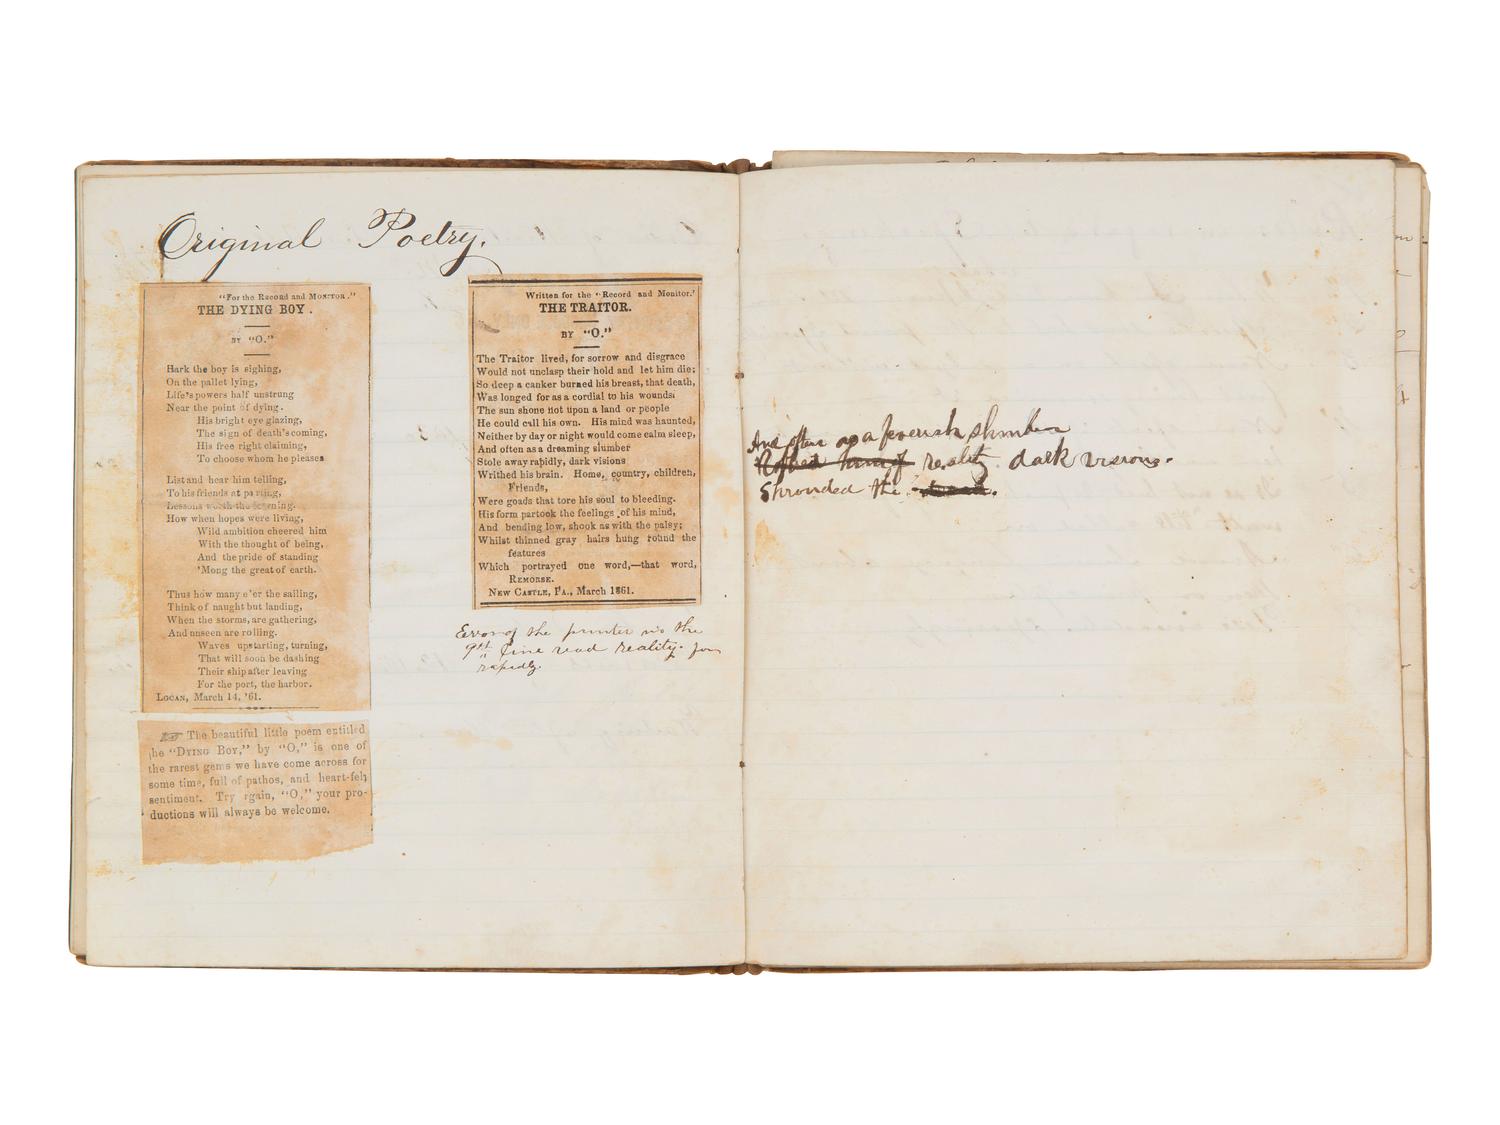 Original Poetry.
"For the Record and Monitor."
THE DYING BOY.
BY "O."
Hark the boy is sighing,
On the pallet lying,
Life's powers half unstrung
Near the point of dying.
His bright eye glazing,
The sign of death's coming,
His free right claiming,
To choose whom he pleases
List and hear him telling,
To his friends at parting,
Lessons worth the learning.
How when hopes were living,
Wild ambition cheered him
With the thought of being,
And the pride of standing
'Mong the great of earth.
Thus how many e'er the sailing,
Think of naught but landing,
When the storms, are gathering,
And unseen are rolling.
Waves upstarting, turning,
That will soon be dashing
Their ship after leaving
For the port, the harbor.
LOGAN, March 14, '61.
The beautiful little poem entitled
the "DYING BOY," by "O," is one of
the rarest gems we have come across for
some time, full of pathos, and heart-felt
sentiment. Try again, "O," your pro-
ductions will always be welcome.
Written for the "Record and Monitor.'
THE TRAITOR.
BY "O."
The Traitor lived, for sorrow and disgrace
Would not unclasp their hold and let him die;
So deep a canker burned his breast, that death,
Was longed for as a cordial to his wounds:
The sun shone not upon a land or people
He could call his own. His mind was haunted,
Neither by day or night would come calm sleep,
And often as a dreaming slumber
Stole away rapidly, dark visions
Writhed his brain. Home, country, children,
Friends,
Were goads that tore his soul to bleeding.
His form partook the feelings of his mind,
And bending low, shook as with the palsy;
Whilst thinned gray hairs hung round the
features
Which portrayed one word,—that word,
REMORSE.
NEW CASTLE, PA., March 1861.
Error of the printer in the
9th line read reality for
rapidly.
And often as a feverish slumber
reality dark visions.
Shrouded the